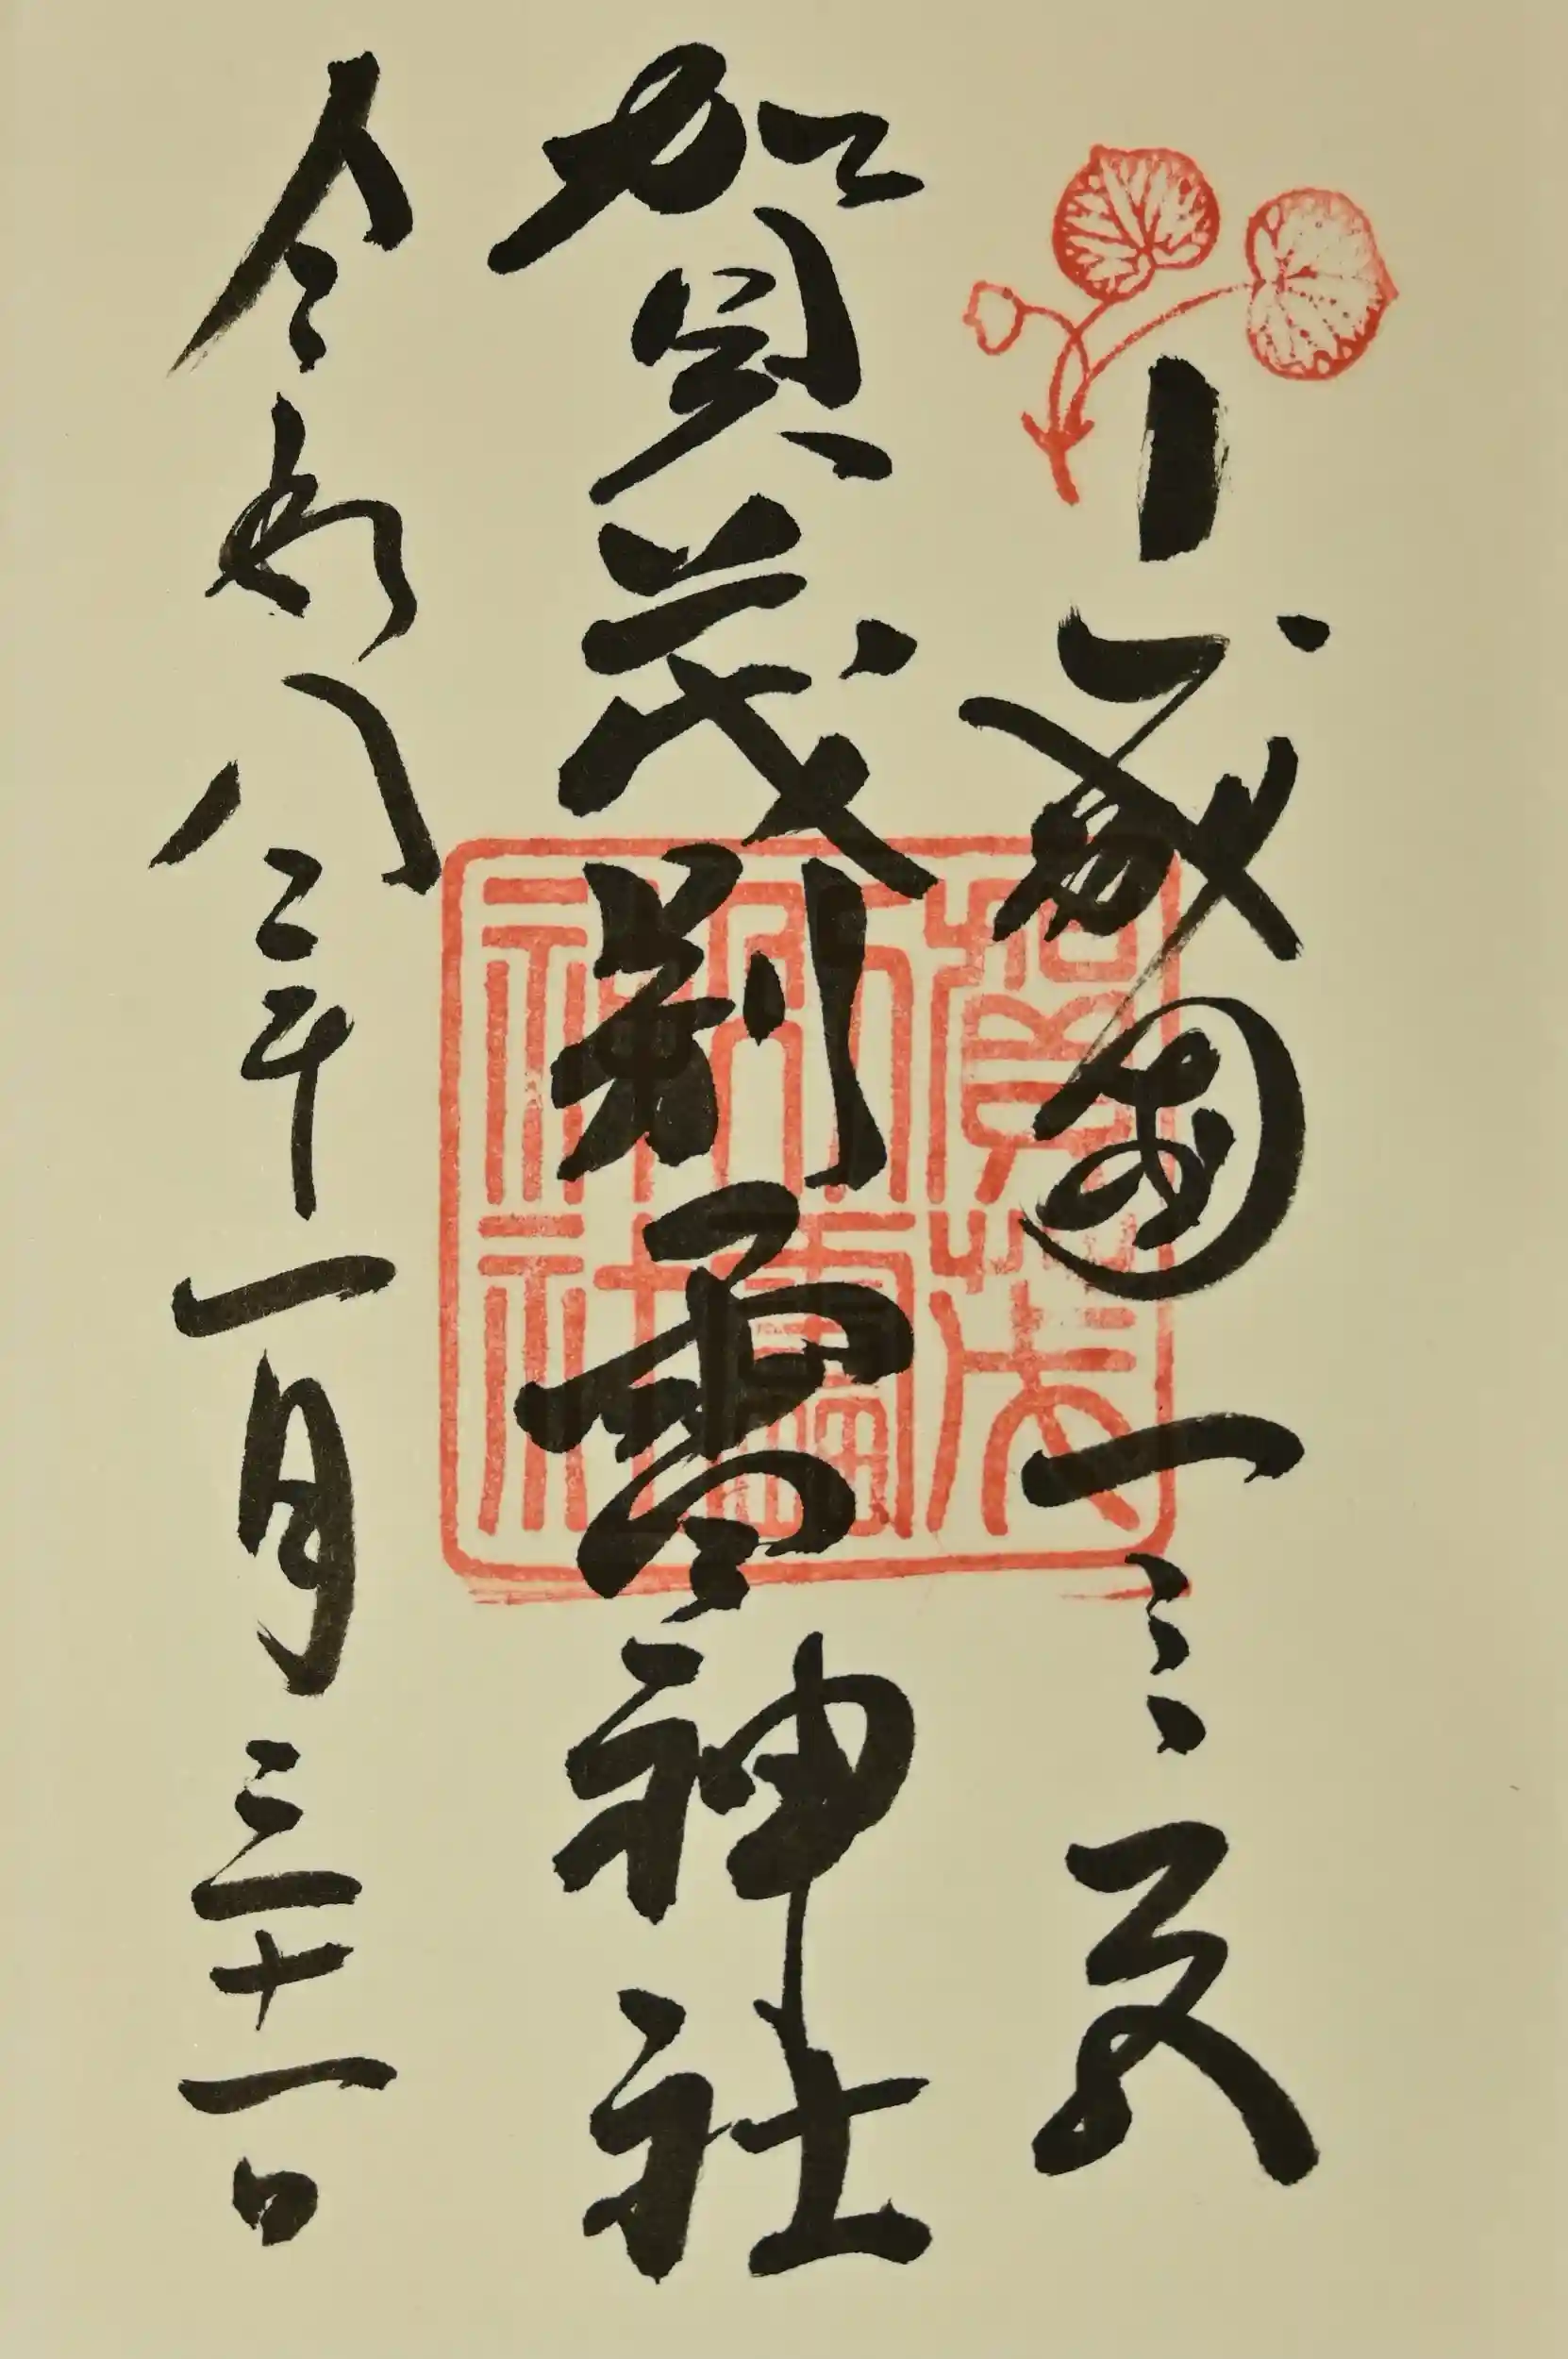 山城國一之宮
賀茂別雷神社
令和八年一月三十一日
賀茂
別雷
神社